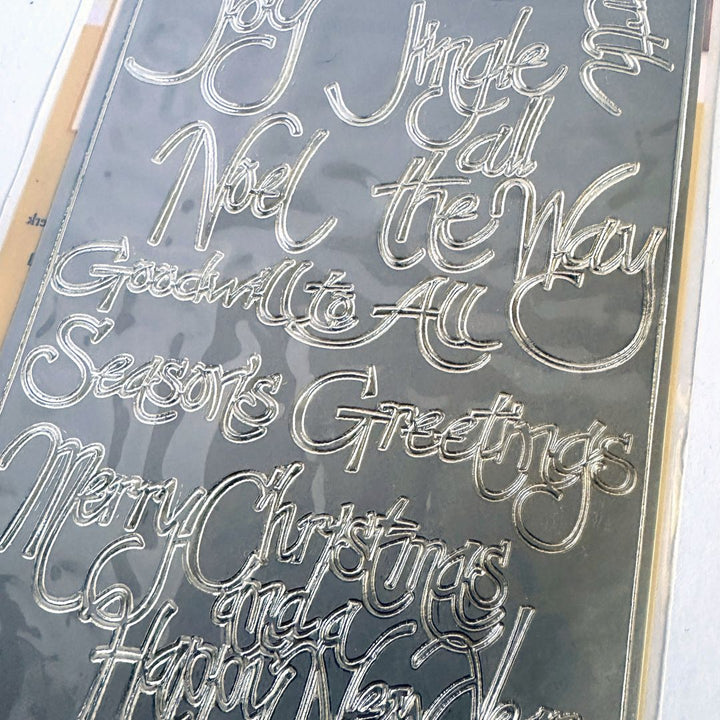 Joy
Jingle
all
the Way
Noel
Goodwill to All
Season's Greetings
Merry Christmas
and a
Happy New Year